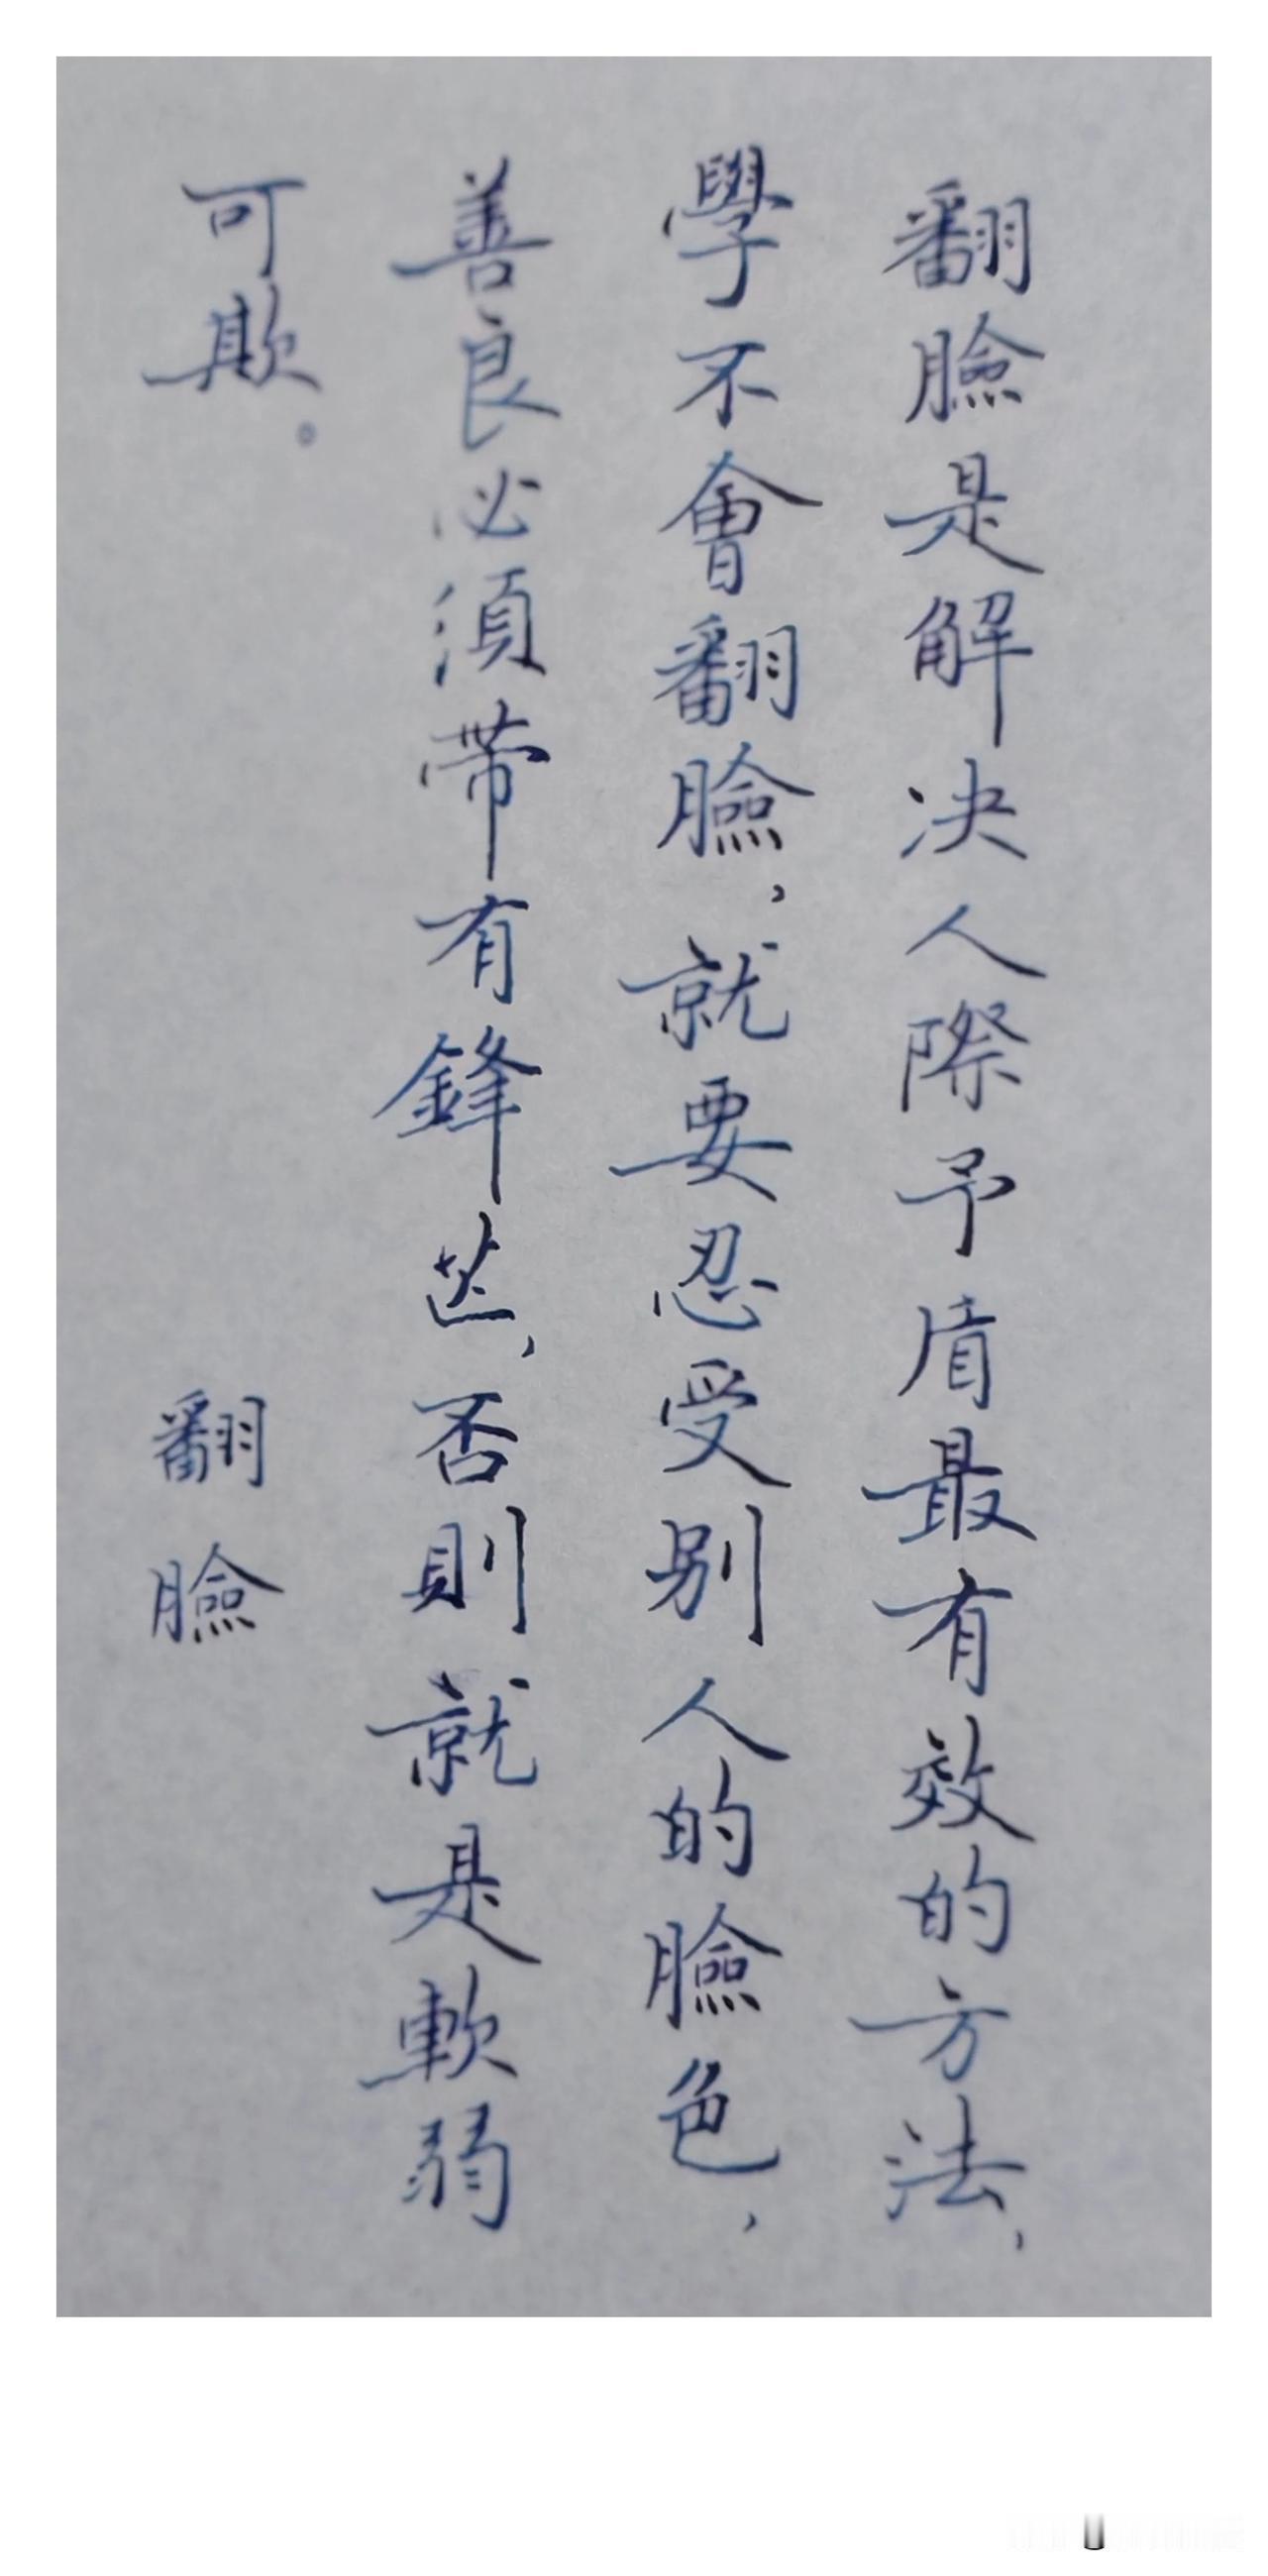 翻臉是解决人際予盾最有效的方法，
學不會翻臉，就要忍受别人的臉色，
善良必須帶有鋒芒，否則就是軟弱
可欺。
翻臉